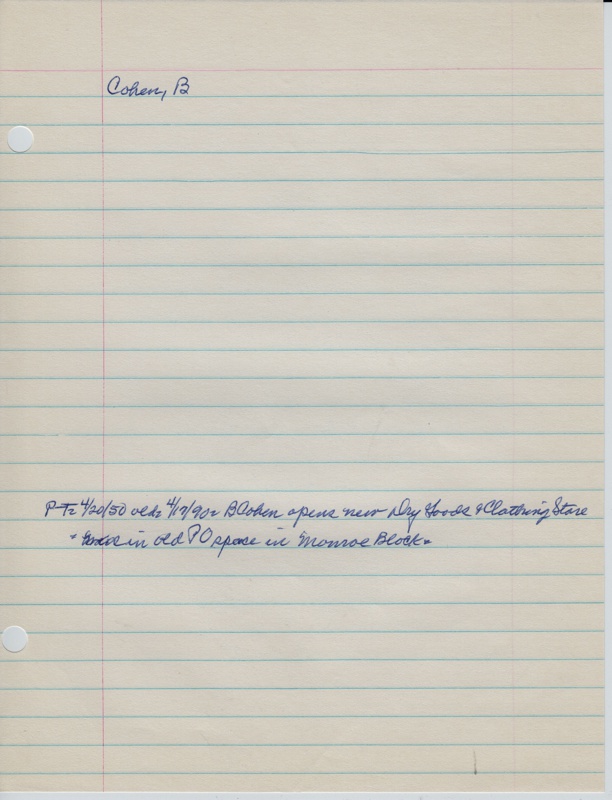 Cohen, B
P-T: 4/20/50 ads 4/17/90: B Cohen opens new Dry Goods & Clothing Store
in old PO space in Monroe Block.